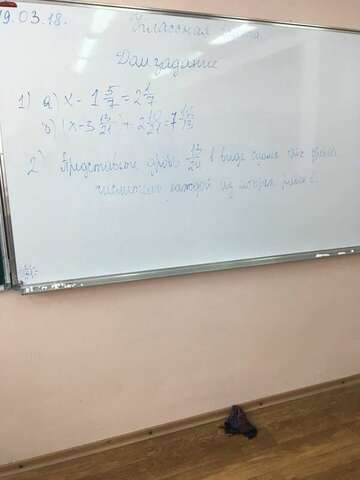 19.03.18. Классная
Дом задание
1) а) x - 1 5/7 = 2 1/7
б) (x - 3 13/21) + 2 10/21 = 7
2) Представьте дробь 13/24 в виде суммы трёх дробей
числитель каждой из которых равен